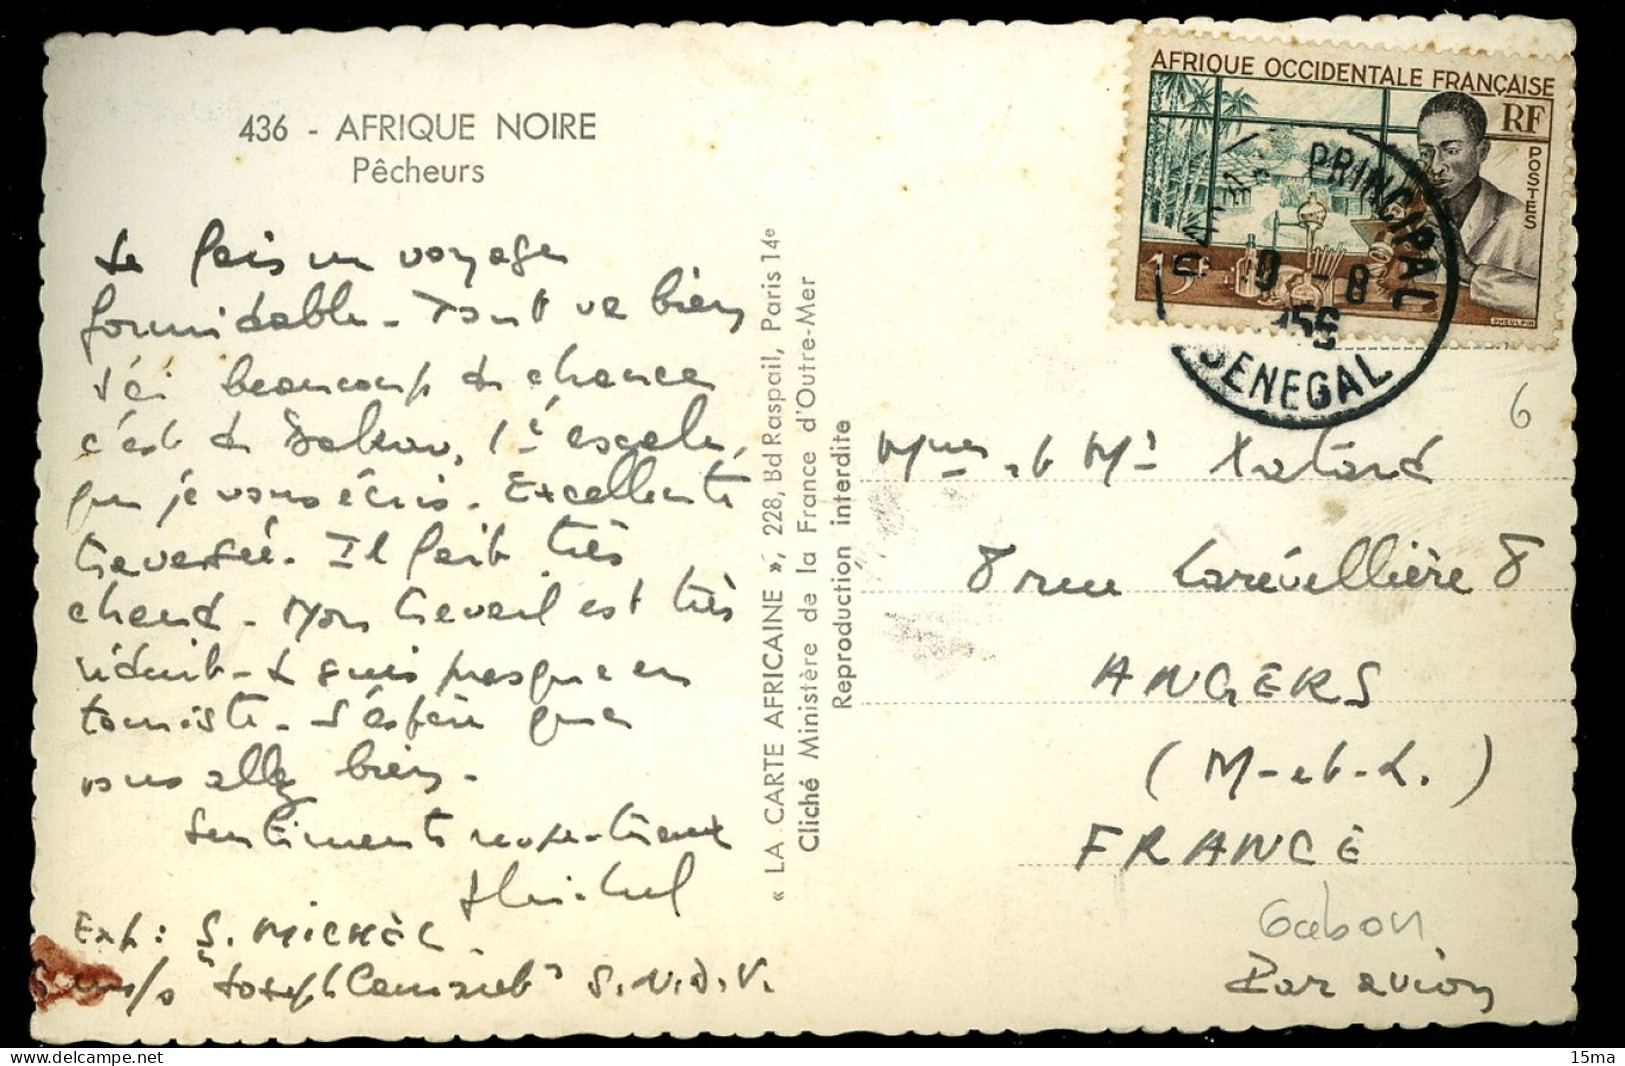 436 - AFRIQUE NOIRE
Pêcheurs
Je fais un voyage
formidable - Tout va bien
J'ai beaucoup de chance
c'est de Dakar, 1è escale,
que je vous écris. Excellente
traversée. Il fait très
chaud - Mon travail est très
réduit - Je suis presque en
touriste - J'espère que
vous allez bien.
Sentiments respectueux
SMichel
Exp: S. MICHEL
m/s "Joseph" S.N.D.V.
« LA CARTE AFRICAINE », 228, Bd Raspail, Paris 14e
Cliché Ministère de la France d'Outre-Mer
Reproduction interdite
AFRIQUE OCCIDENTALE FRANÇAISE
RF
POSTES
15F
PHEULPIN
PRINCIPAL
9 - 8
56
SENEGAL
6
Mme et Mr Xatard
8 rue Larévellière 8
ANGERS
(M-et-L.)
FRANCE
Gabon
Par avion
15ma